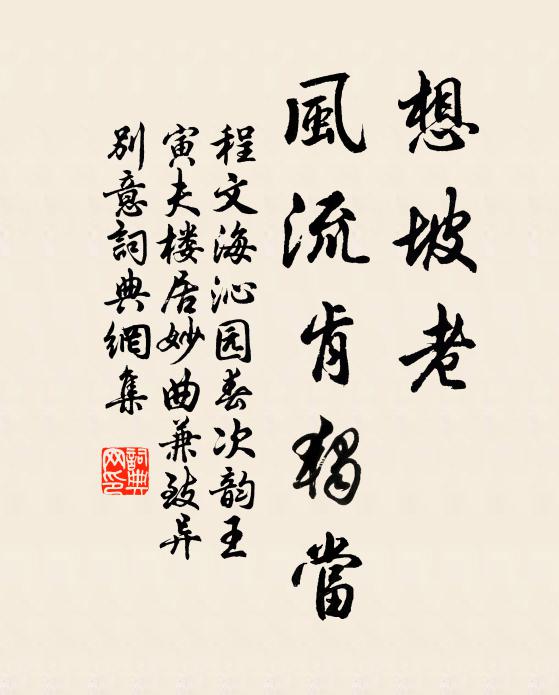 想坡老
風流肯獨當
程文海沁园春次韵王
寅夫楼居妙曲兼致异
别意詞典網集
詞典
网印